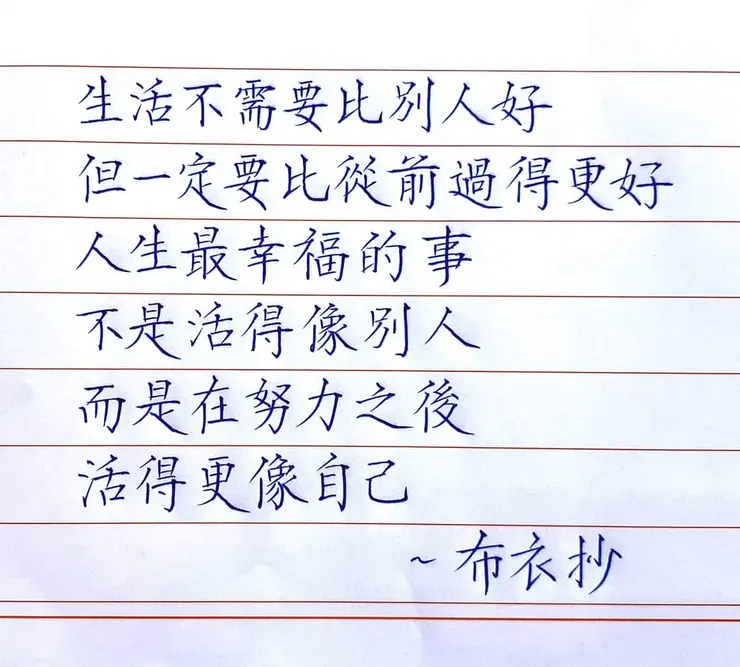 生活不需要比別人好
但一定要比從前過得更好
人生最幸福的事
不是活得像別人
而是在努力之後
活得更像自己
~布衣抄